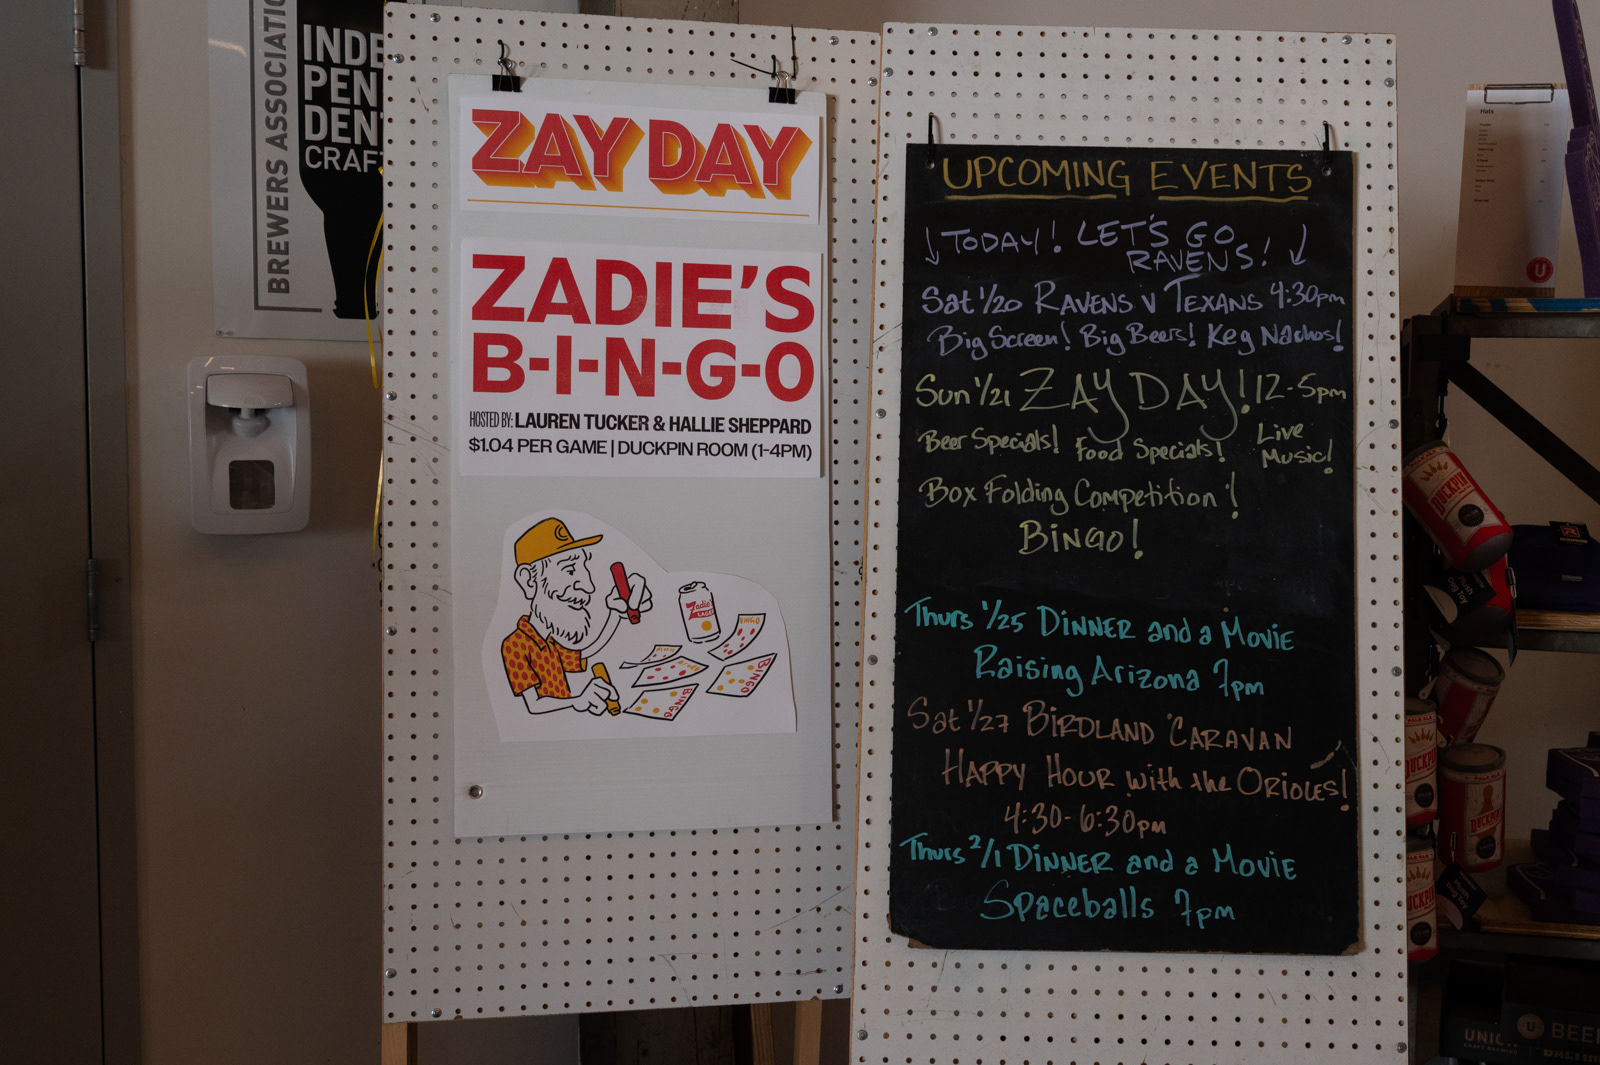 BREWERS ASSOCIATIO
INDE
PEN
DEN
CRAF
ZAY DAY
ZADIE'S
B-I-N-G-O
HOSTED BY: LAUREN TUCKER & HALLIE SHEPPARD
$1.04 PER GAME | DUCKPIN ROOM (1-4PM)
C
Zadie's
LAGER
BINGO
BINGO
BINGO
UPCOMING EVENTS
TODAY! LET'S GO
RAVENS!
Sat 1/20 RAVENS V TEXANS 4:30pm
Big Screen! Big Beers! Keg Nachos!
Sun 1/21 ZAY DAY! 12-5pm
Beer Specials! Food Specials! Live
Music!
Box Folding Competition!
BINGO!
Thurs 1/25 DINNER and a MOVIE
Raising Arizona 7pm
Sat 1/27 BIRDLAND CARAVAN
HAPPY HOUR with the ORIOLES!
4:30-6:30pm
Thurs 2/1 DINNER and a MOVIE
Spaceballs 7pm
Hats
U
DUCKPIN
Plush
Dog Toy
PALE ALE
DUCKPIN
PALE ALE
DUCKPIN
UNIO
CRAFT BREWING
U
BEER